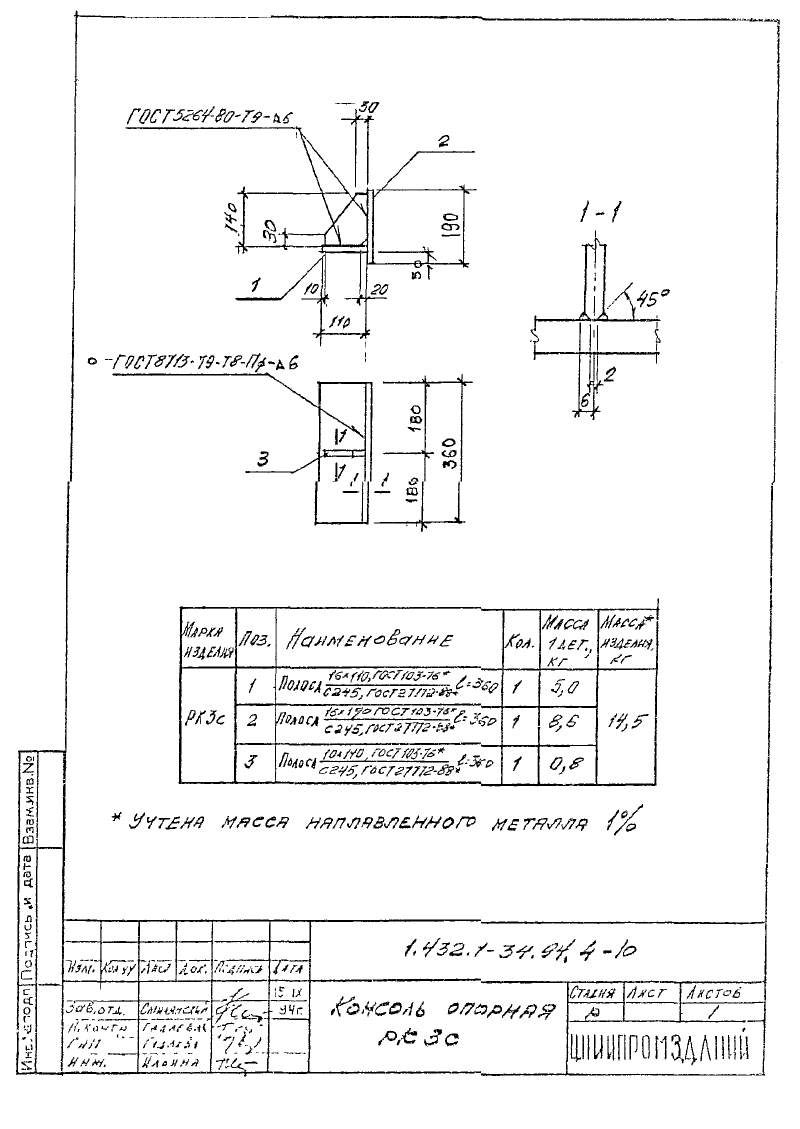 ГОСТ5264-80-Т9-⊿6
30
2
140
30
190
50
1
10
20
110
1-1
45°
2
6
ГОСТ8713-Т9-Т8-Пр-⊿6
180
360
3
1
1
1 1
180
Марка изделия Поз. Наименование Кол. Масса 1 дет., кг Масса* изделия, кг
РК3с
1 Полоса 16х110, ГОСТ 103-76* / С245, ГОСТ 27772-88* ℓ=360 1 5,0
2 Полоса 16х190 ГОСТ 103-76* / С245, ГОСТ 27772-88* ℓ=360 1 8,6
14,5
3 Полоса 10х140, ГОСТ 103-76* / С245, ГОСТ 27772-88* ℓ=360 1 0,8
* Учтена масса наплавленного металла 1%
Взам.инв.№
Подпись и дата
Инв.№подл
1.432.1-34.94.4-10
Изм. Кол уч Лист Док. Подпись Дата
15 IX
94г.
Зав.отд.
Н.контр
ГИП
Инж. Ильина
Консоль опорная
РК 3с
Стадия Лист Листов
Р 1
ЦНИИПРОМЗДАНИЙ